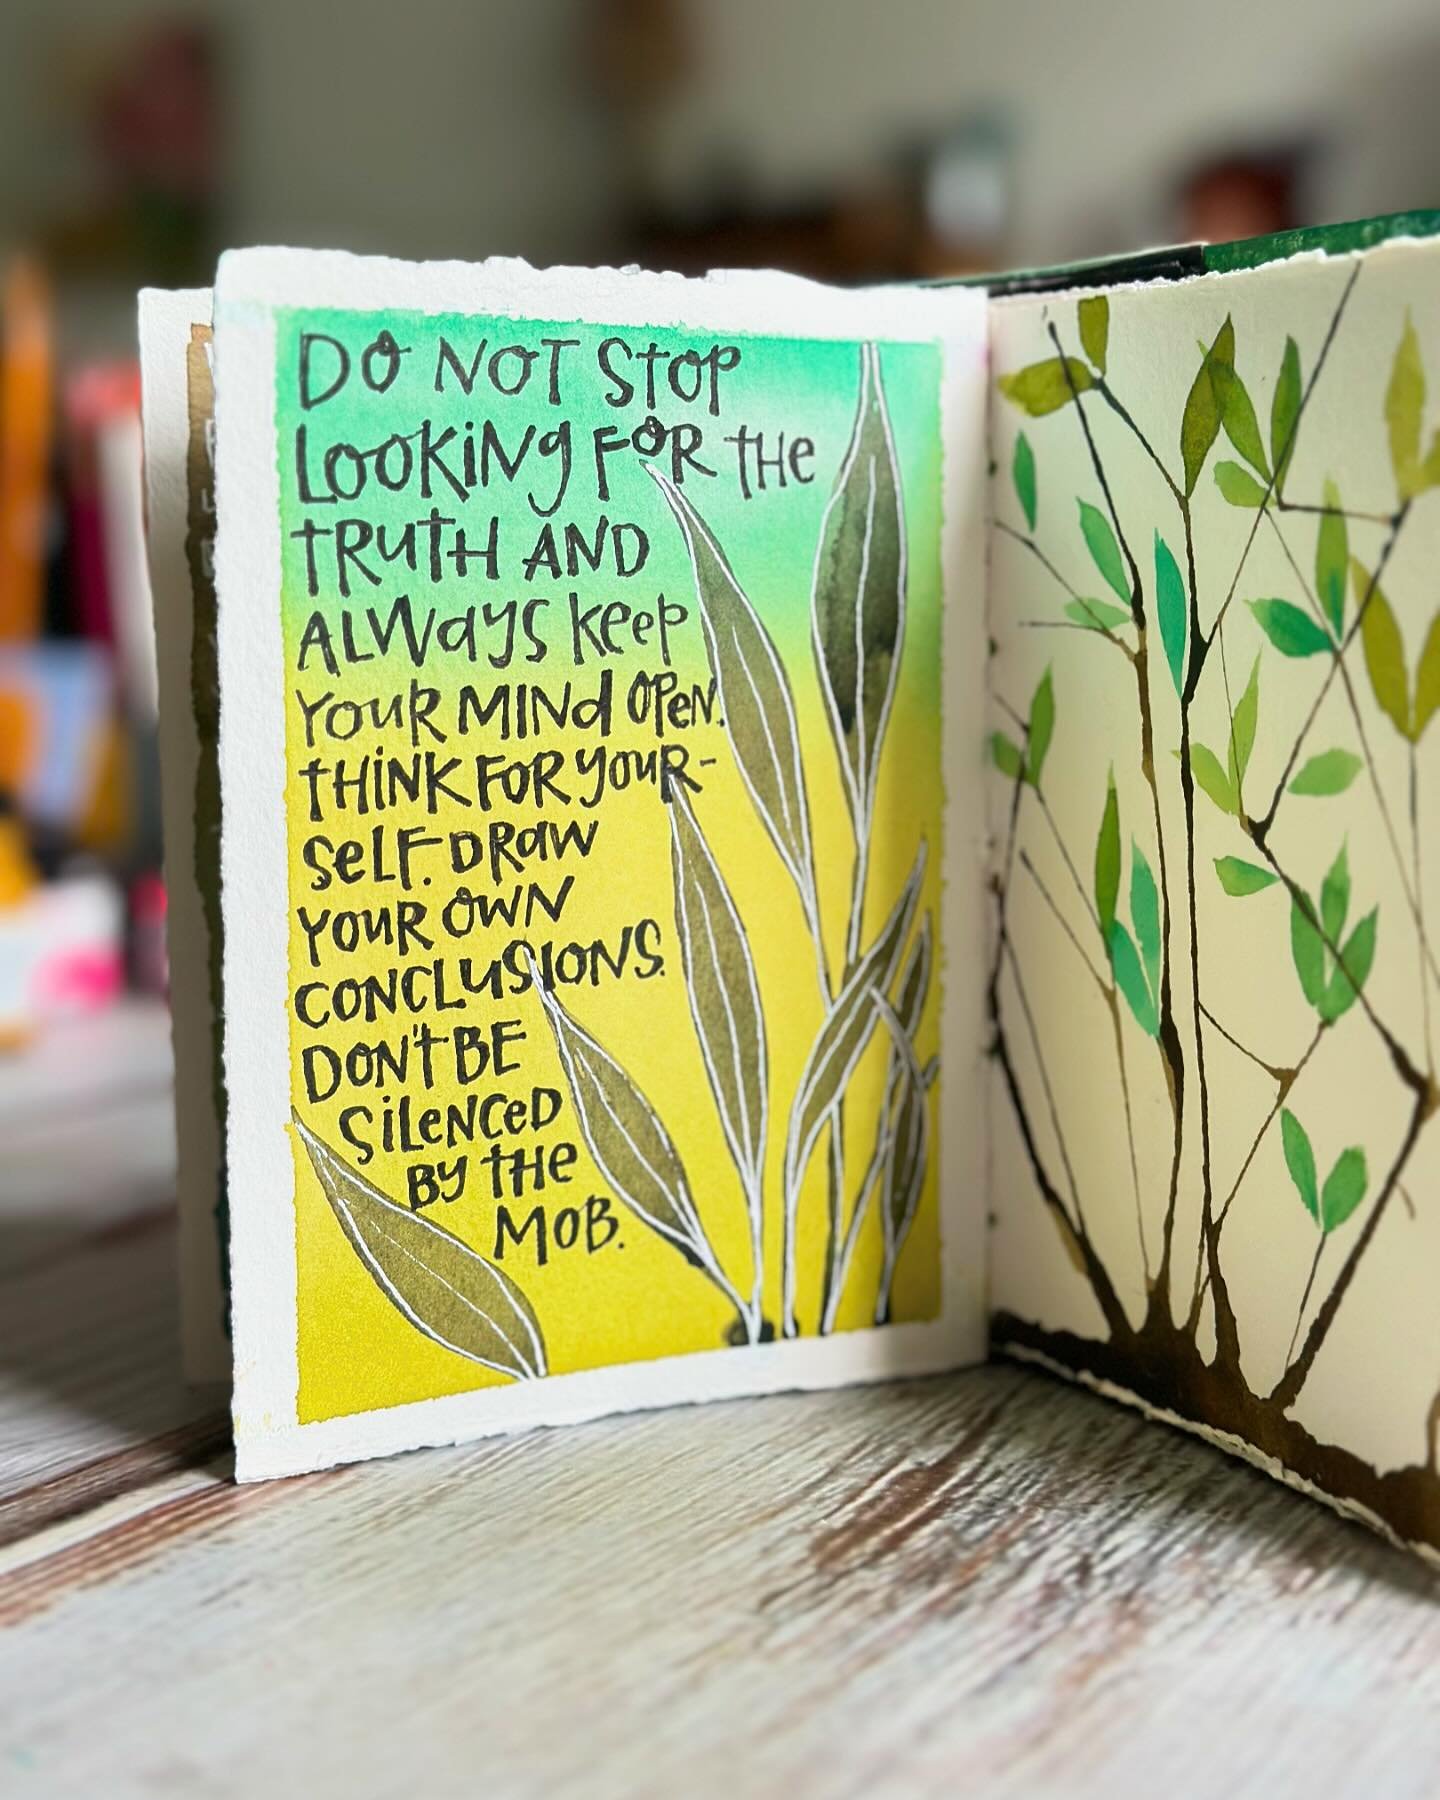 DO NOT STOP
LOOKING FOR THE
TRUTH AND
ALWAYS KEEP
YOUR MIND OPEN.
THINK FOR YOUR-
SELF. DRAW
YOUR OWN
CONCLUSIONS.
DON'T BE
SILENCED
BY THE
MOB.